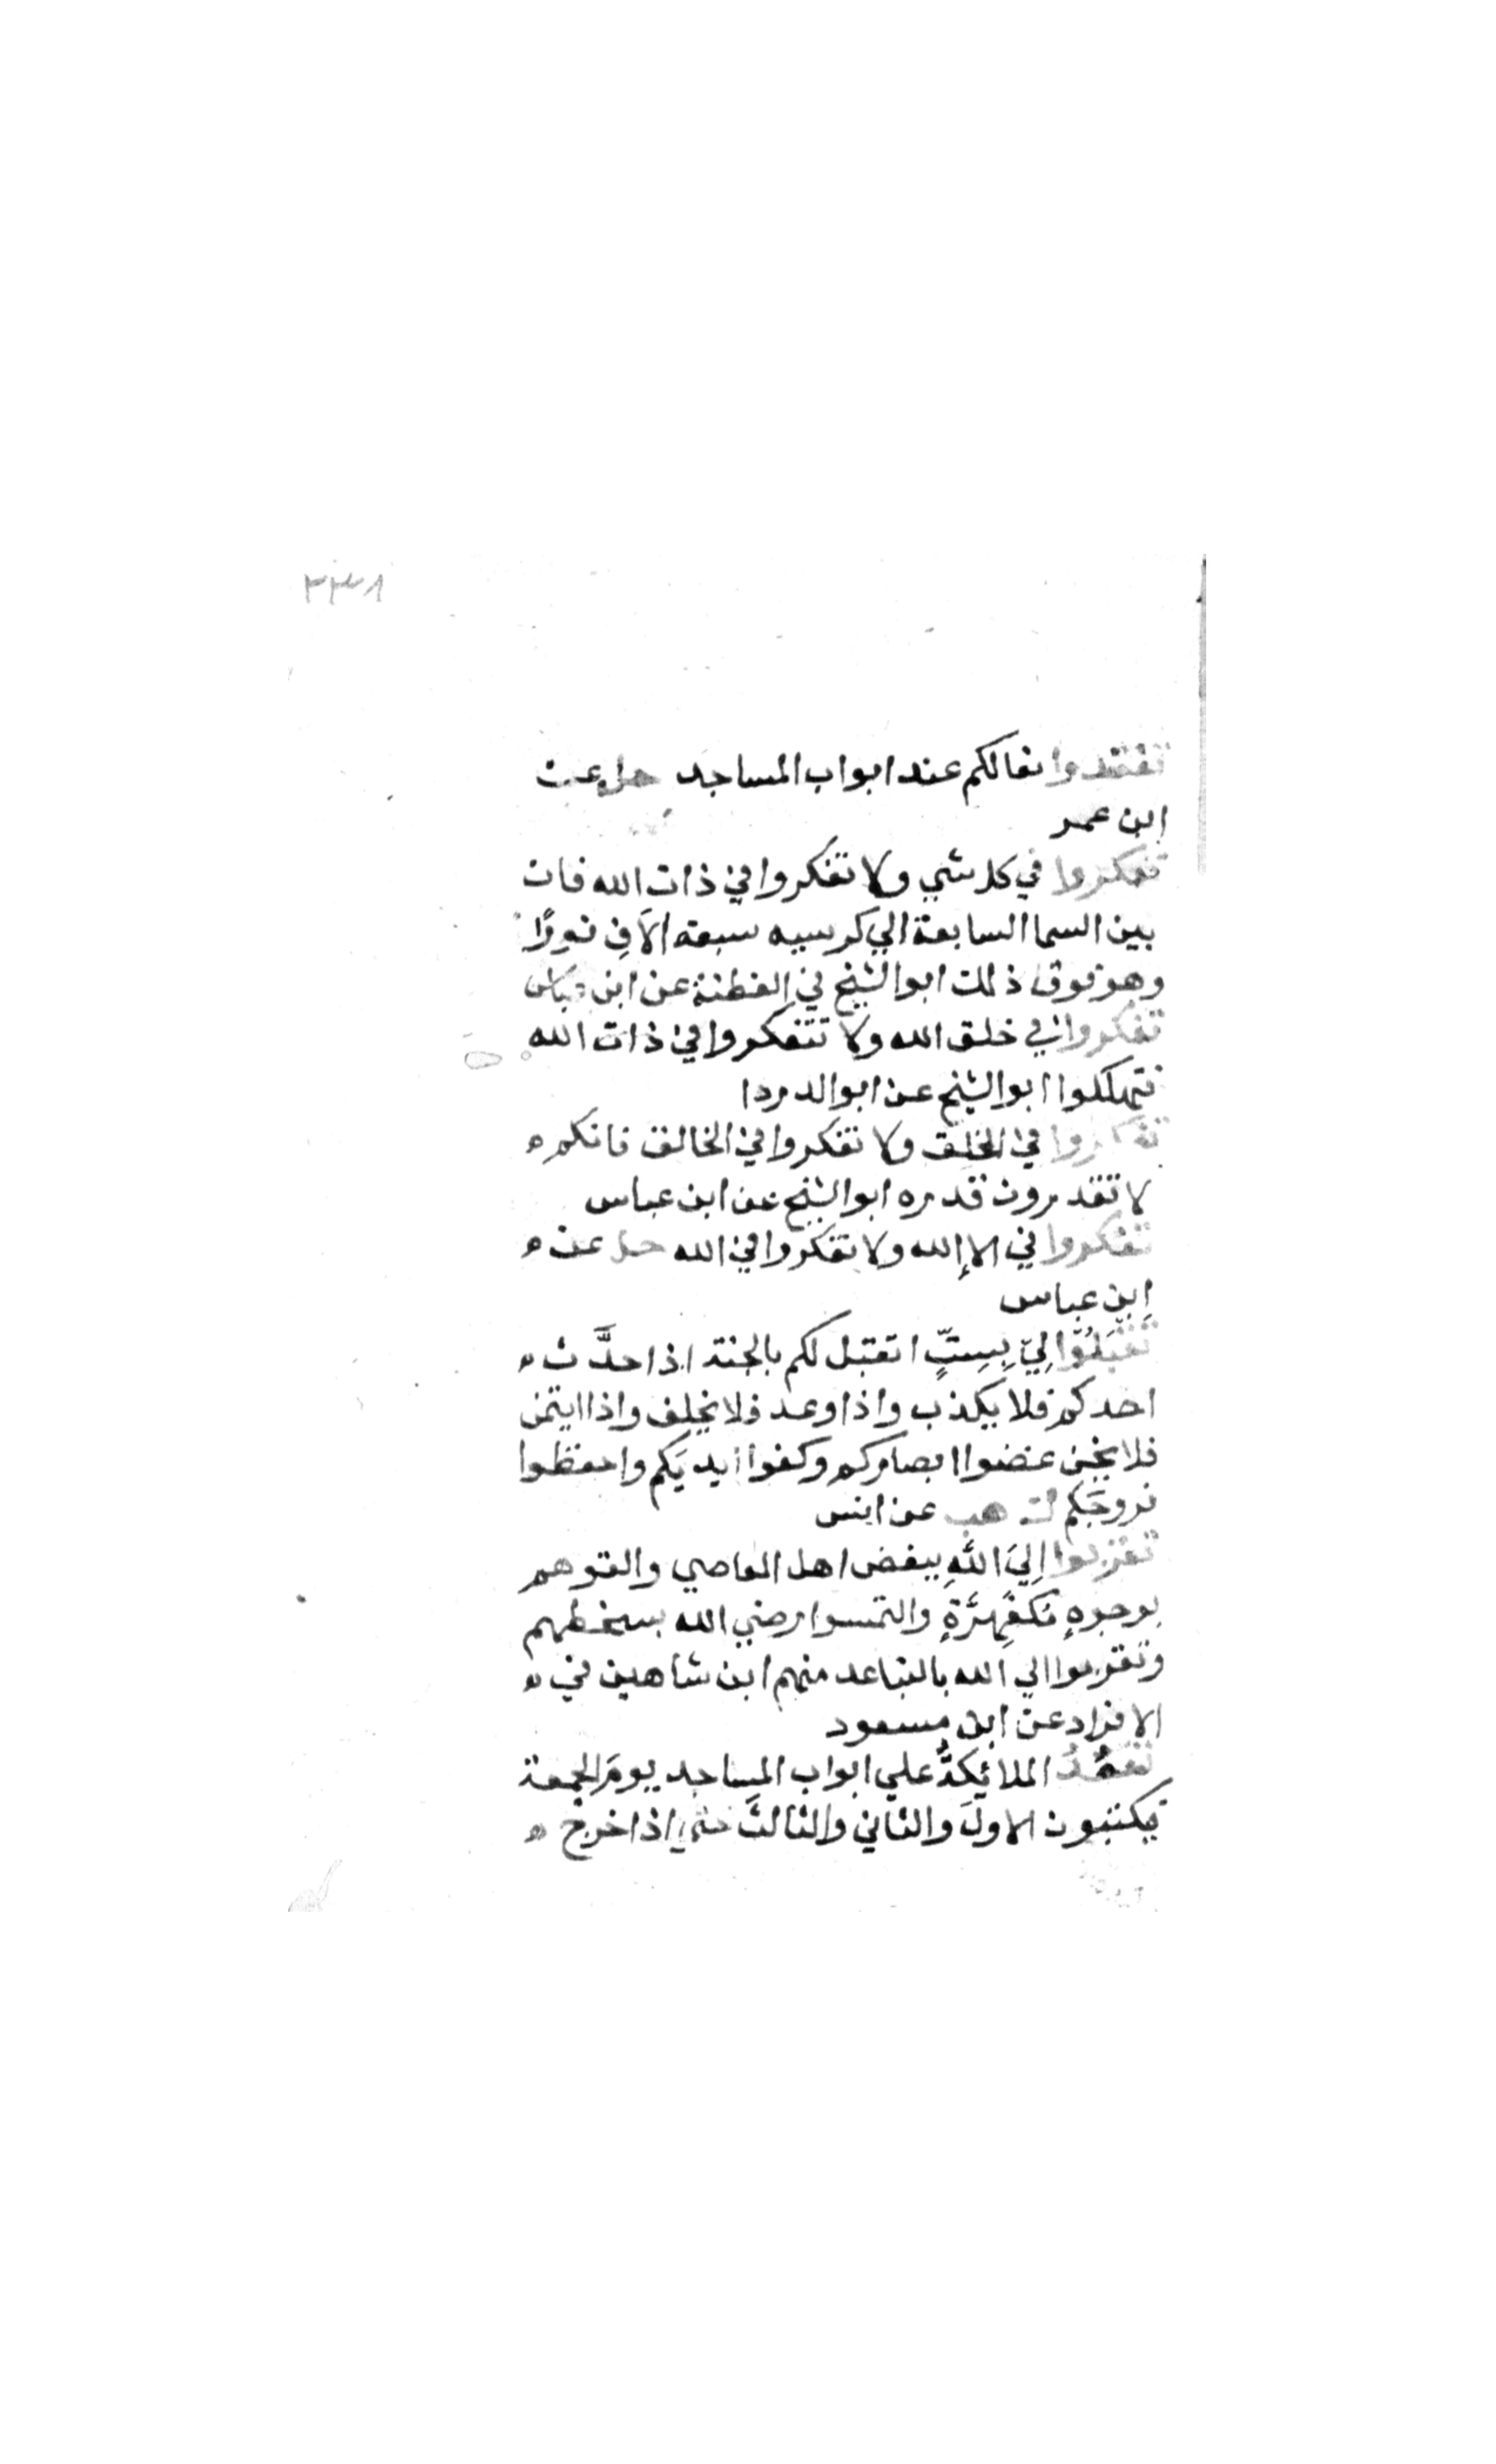 ٣٣٨
تفقدوا نعالكم عند ابواب المساجد حل عن
ابن عمر
تفكروا في كل شي ولا تفكروا في ذات الله فان
بين السما السابعة الي كرسيه سبعة الاف نورا
وهو فوق ذلك ابو الشيخ في العظمة عن ابن عباس
تفكروا في خلق الله ولا تتفكروا في ذات الله
فتهلكوا ابو الشيخ عن ابو الدردا
تفكروا في الخلق ولا تفكروا في الخالق فانكم ه
لا تقدرون قدره ابو الشيخ عن ابن عباس
تفكروا في الاإ الله ولا تفكروا في الله حل عن ه
ابن عباس
تَقَبَّلُوا لِي بِسِتٍّ اتقبل لكم بالجنة اذا حدَّث ه
احدكم فلا يكذب واذا وعد فلا يخلف واذا ايتمن
فلا يخن غضوا ابصاركم وكفوا ايديَكم واحفظوا
فروجَكم ك هب عن انس
تقربوا اِليَ اللَّهِ ببغض اهل المعاصي والقوهم
بوجوهٍ مُكْفَهِرَّةٍ والتمسوا رضي الله بسخطهم
وتقربوا الي الله بالتباعد منهم ابن شاهين في ه
الافراد عن ابن مسعود
تقعُدُ الملائِكَةُ علي ابواب المساجد يومَ الجمعة
يكتبون الاولَ والثاني والثالثَ حتي اذا خرج ه